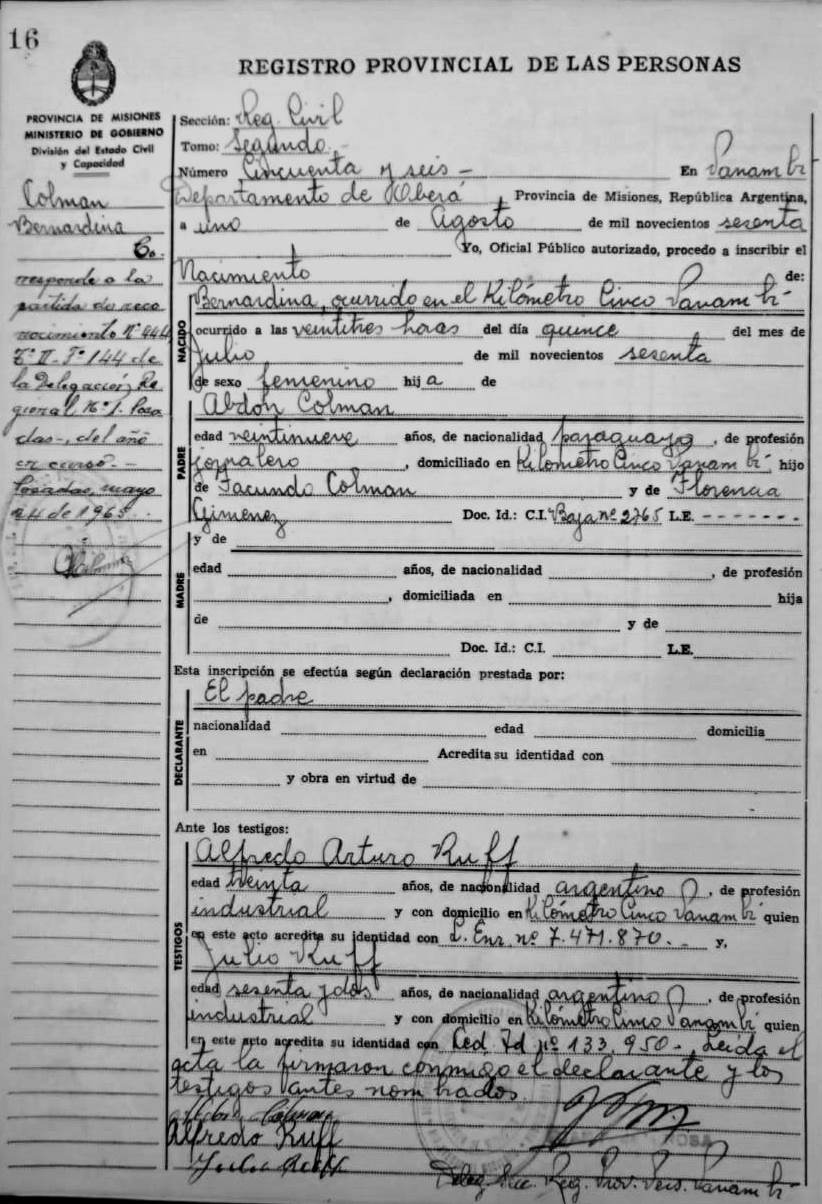 16
REGISTRO PROVINCIAL DE LAS PERSONAS
PROVINCIA DE MISIONES
MINISTERIO DE GOBIERNO
División del Estado Civil
y Capacidad
Colman
Bernardina
Co-
rresponde a la
partida de reco
nocimiento Nº 444
Tº II - Fº 144 de
la Delegación Re
gional Nº 1. Posa
das-, del año
en curso.-
Posadas, mayo
24 de 1965.
Sección: Reg. Civil
Tomo: Segundo.
Número Cincuenta y seis - En Panambí
Departamento de Oberá, Provincia de Misiones, República Argentina,
a uno de Agosto de mil novecientos sesenta
Yo, Oficial Público autorizado, procedo a inscribir el
Nacimiento de:
NACIDO
Bernardina, ocurrido en el Kilómetro Cinco Panambí
ocurrido a las veintitres horas del día quince del mes de
Julio de mil novecientos sesenta
de sexo femenino hija de
PADRE
Abdón Colman
edad veintinueve años, de nacionalidad paraguaya, de profesión
jornalero, domiciliado en Kilómetro Cinco Panambí hijo
de Facundo Colman y de Florencia
Gimenez Doc. Id.: C.I. Baja nº 2765 L.E. -------
MADRE
y de
edad años, de nacionalidad , de profesión
, domiciliada en hija
de y de
Doc. Id.: C.I. L.E.
Esta inscripción se efectúa según declaración prestada por:
DECLARANTE
El padre
nacionalidad edad domicilia
en Acredita su identidad con
y obra en virtud de
Ante los testigos:
TESTIGOS
Alfredo Arturo Ruff
edad treinta años, de nacionalidad argentino, de profesión
industrial y con domicilio en Kilómetro Cinco Panambí quien
en este acto acredita su identidad con L. Enr. nº 7.471.870.- y,
Julio Ruff
edad sesenta y dos años, de nacionalidad argentino, de profesión
industrial y con domicilio en Kilómetro Cinco Panambí quien
en este acto acredita su identidad con Ced. Id nº 133,950-. Leída el
acta la firmaron conmigo el declarante y los
testigos antes nombrados.
Abdon Colman
Alfredo Ruff
Julio Ruff
Reg. Prov. Pers. Panambí